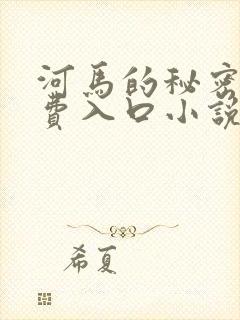 河馬的秘密
費入口小說
希夏